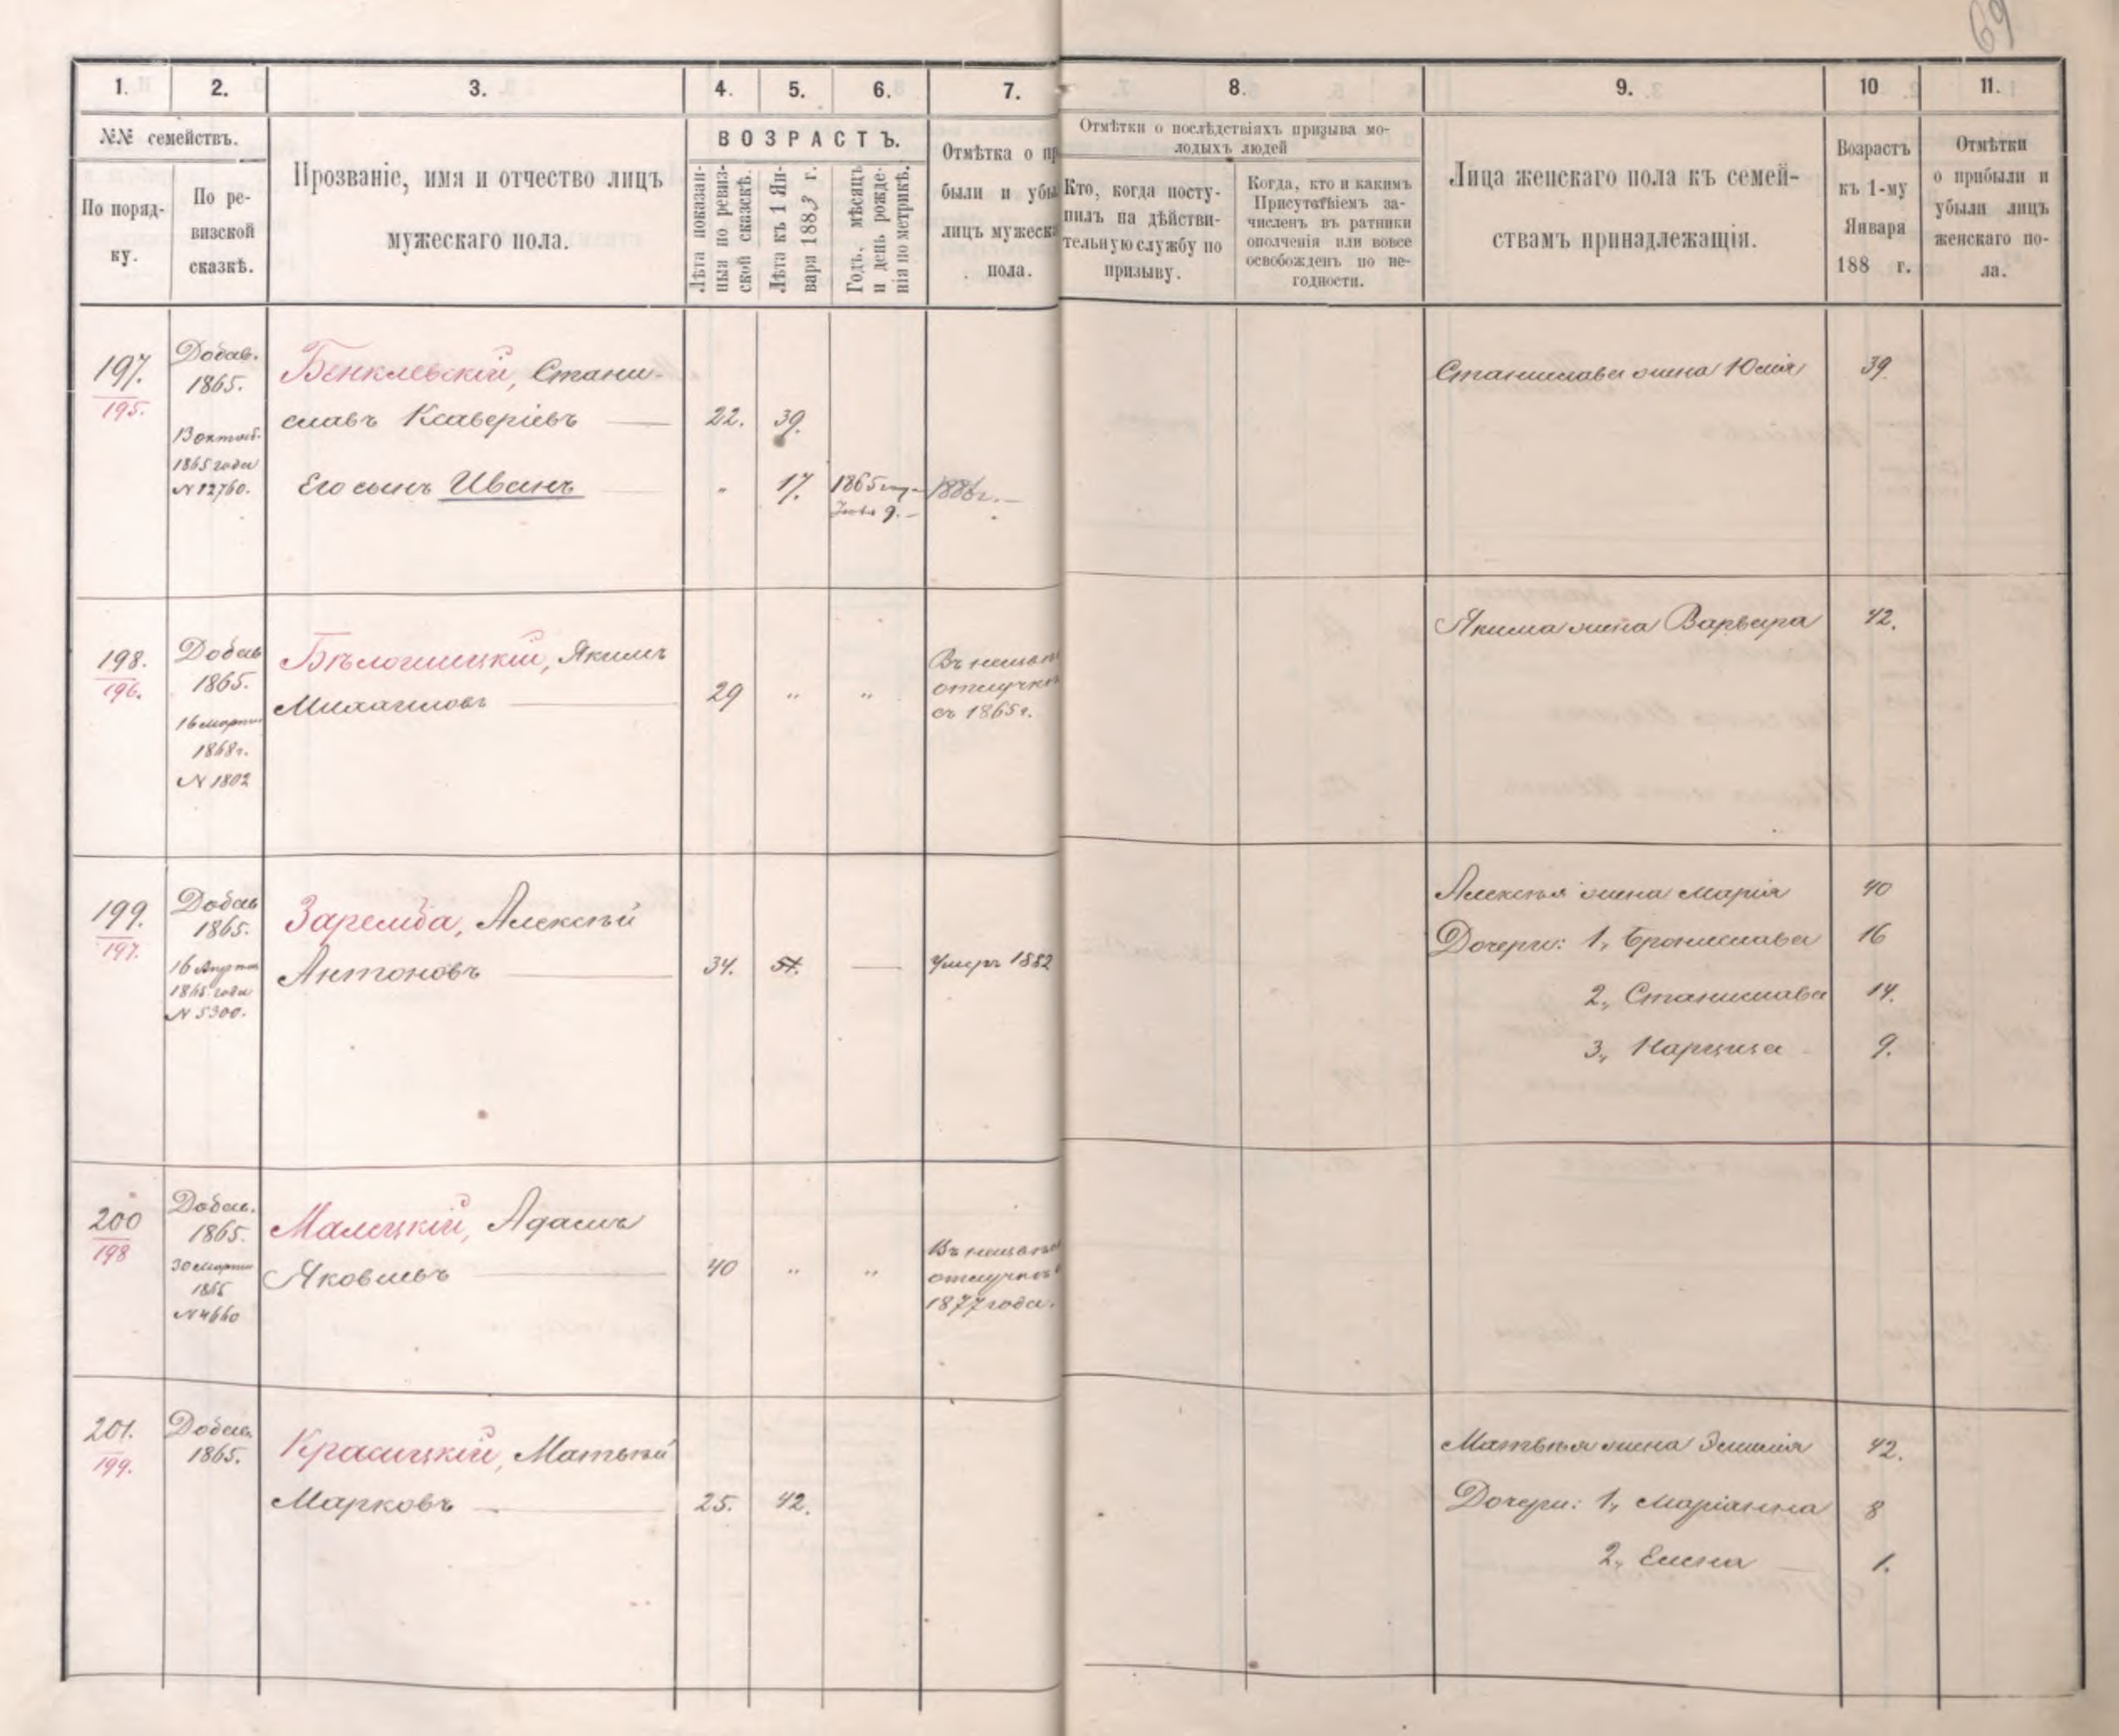 69
1. 2. 3. 4. 5. 6. 7. 8. 9. 10 11.
№№ семействъ.
По поряд-
ку.
По ре-
визской
сказкѣ.
Прозваніе, имя и отчество лицъ
мужескаго пола.
ВОЗРАСТЪ.
Лѣта показан-
ныя по ревиз-
ской сказкѣ.
Лѣта къ 1 Ян-
варя 1883 г.
Годъ, мѣсяцъ
и день рожде-
нія по метрикѣ.
Отмѣтка о пр
были и убы
лицъ мужеска
пола.
Отмѣтки о послѣдствіяхъ призыва мо-
лодыхъ людей
Кто, когда посту-
пилъ на дѣйстви-
тельную службу по
призыву.
Когда, кто и какимъ
Присутствіемъ за-
численъ въ ратники
ополченія или вовсе
освобожденъ по не-
годности.
Лица женскаго пола къ семей-
ствамъ принадлежащія.
Возрастъ
къ 1-му
Января
188 г.
Отмѣтки
о прибыли и
убыли лицъ
женскаго по-
ла.
197.
195.
Добав.
1865.
13 октяб.
1865 года
N 12760.
Бенклевскій, Стани-
славъ Ксаверіевъ 22. 39.
Его сынъ Иванъ " 17. 1865 9. 1886 г.
Станислава жена Юлія 39.
198.
196.
Добав
1865.
16 марта
1868 г.
N 1802
Бѣлошицкій, Якимъ
Михайловъ 29 " "
отлучкѣ
съ 1865 г.
Якима жена Варвара 42.
199.
197.
Добав
1865.
16 Апрѣля
1865 года
N 5300.
Заремба, Алексѣй
Антоновъ 34. 51. — Умеръ 1882
Алексѣя жена Марія 40
Дочери: 1, Бронислава 16
2, Станислава 14.
3, Нарциза 9.
200
198
Добав.
1865.
30 марта
1865
N 4660
Малецкій, Адамъ
Яковлевъ 40 " "
отлучкѣ
1877 года.
201.
199.
Добав.
1865.
Красицкій, Матвѣй
Марковъ 25. 42.
Матвѣя жена Эмилія 42.
Дочери: 1, Маріанна 8
2, Елена 1.